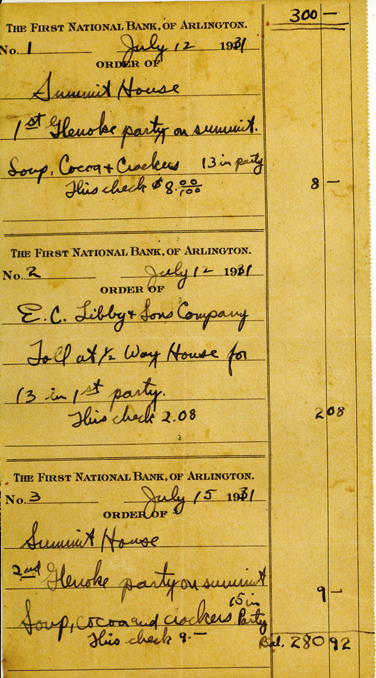 300 —
THE FIRST NATIONAL BANK, OF ARLINGTON.
No. 1 July 12 1931
ORDER OF
Summit House
1st Glenoke party on summit.
Soup, Cocoa + Crackers 13 in party
This check $8.00/100 8 —
THE FIRST NATIONAL BANK, OF ARLINGTON.
No. 2 July 12 1931
ORDER OF
E. C. Libby + Sons Company
Toll at ½ Way House for
13 in 1st party.
This check 2.08 2 08
THE FIRST NATIONAL BANK, OF ARLINGTON.
No. 3 July 15 1931
ORDER OF
Summit House
2nd Glenoke party on summit 9 —
Soup, cocoa and crackers 15 in Party
This check 9.— Bal. 280 92